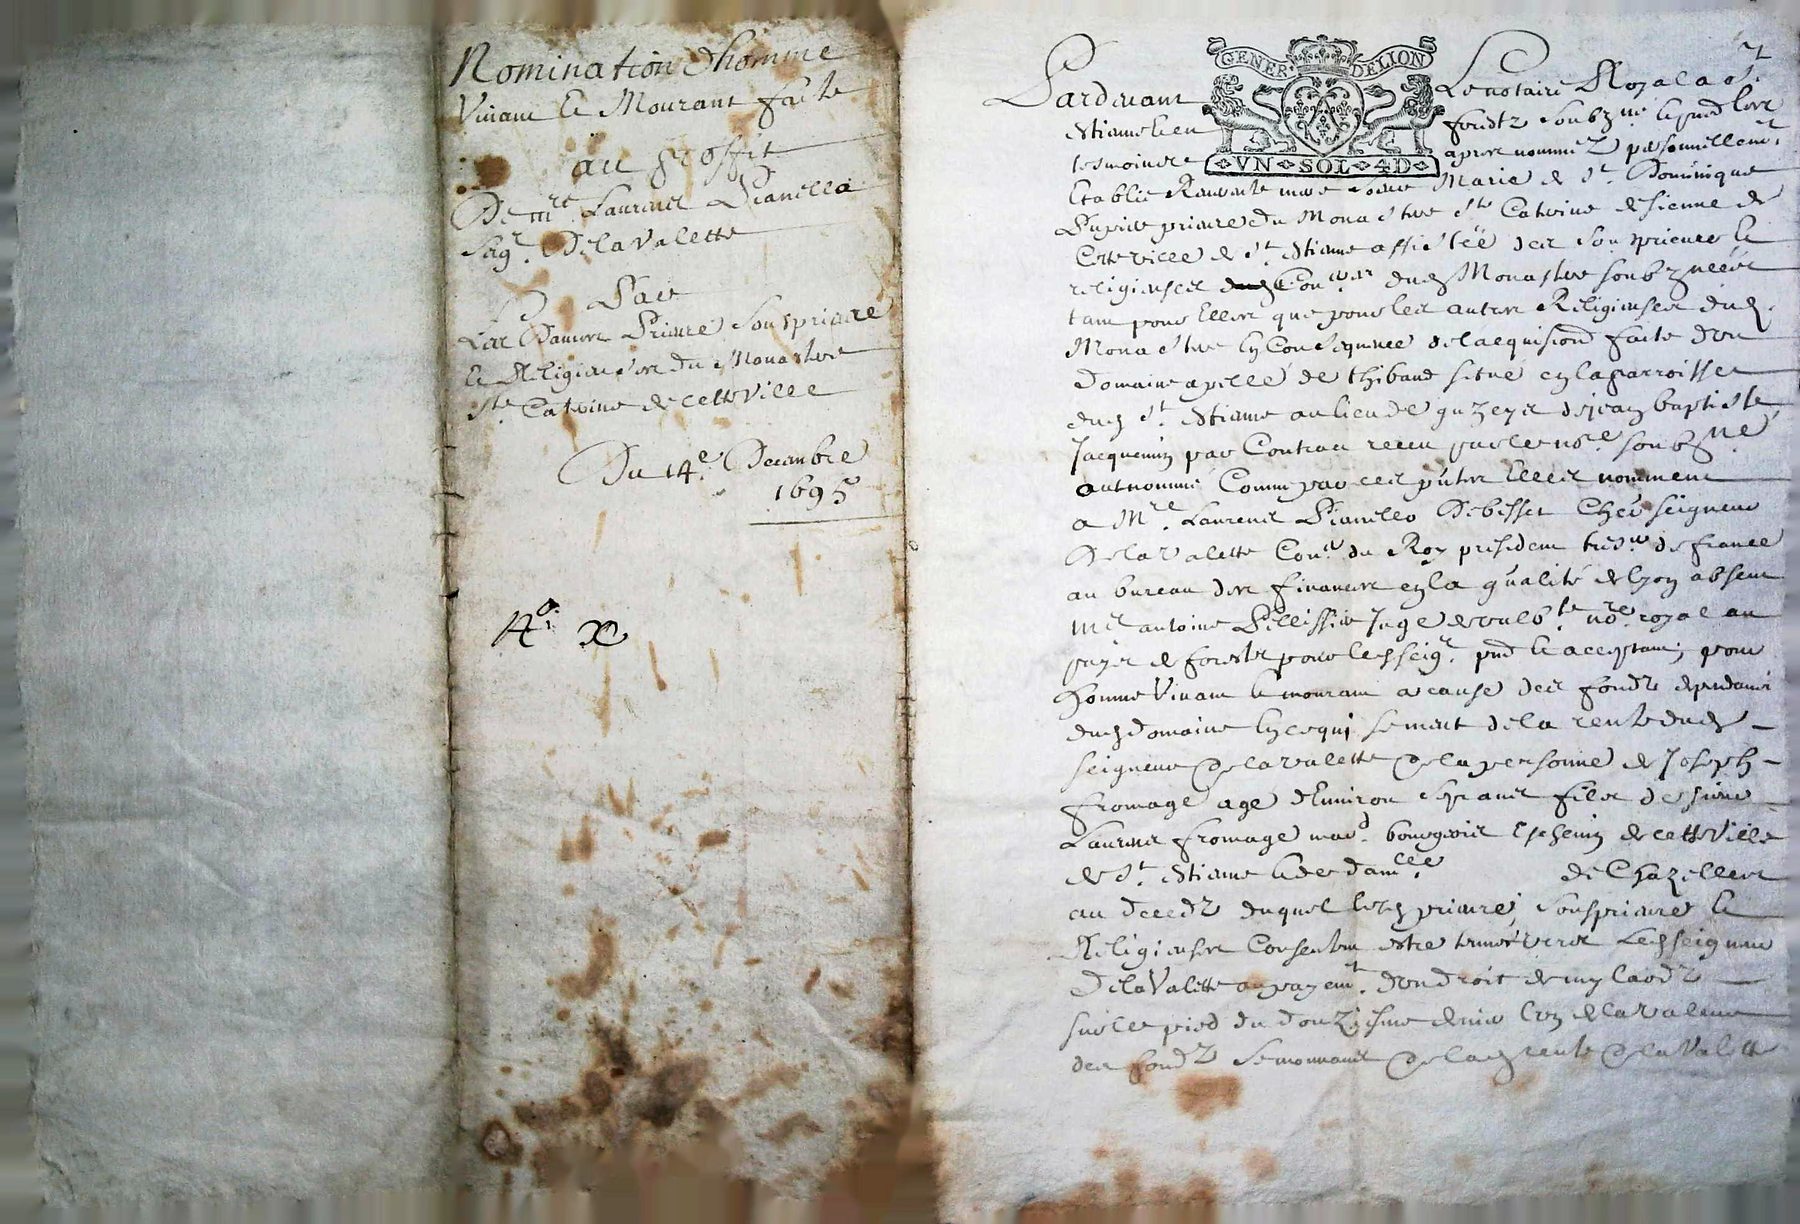 Nomination d'homme
Vivant et Mourant faite
au proffit
De mre Laurens Pianello
Seigr. De la Valette
Par
Les Dames Prieure Sousprieure
et Religieuses du Monastere
Ste. Caterine de cette ville
Du 14e. Decembre
1695
GENER. DE LION
VN SOL 4D
Pardevant Le notaire Royal a St.
Estienne en foretz soubzne et presd les
tesmoins apres nommez personnellemt.
Establie Reverente mere soeur Marie de St. Dominique
prieure du Monastere Ste Caterine de Sienne de
Cette ville de St. Estienne assistée des sousprieure et
religieuses dud Monastere soubznées
tant pour Elles que pour les autres Religieuses dud.
Monastere en Consequence de l'acquision faite d'un
Domaine apellé de thibaud situé en la parroisse
dud St. Estienne au lieu de de jean baptiste
Jacquemin par Contrau receu par le nore. soubzne
ont nommé Comme par ces pntes Elles nomment
a Mre. Laurens Pianello De besset Cher seigneur
De la Valette Coner. du Roy president tresr. de france
au bureau des finances en la g'nalité de lyon absent
Mr antoine Pellissier Juge nore. royal au
payis de forestz pour led seigr. pnt et acceptant, pour
homme Vivant et mourant a cause des fondz dependant
dud domaine en ce qui se meut de la rente dud
seigneur de la valette de la personne de Joseph
fromage age d'Environ sept ans filz de sieur
Laurens fromage mard. bourgeois de cette ville
de St. Estienne et de damlle de Chazelles
au decedz duquel lesd prieure, sousprieure et
Religieuses Consentent estre envers Led seigneur
De la Valette au payemt. d'un droit de my laodz
sur le pied du douziesme denier de la valeur
des fondz se mouvant de lad rente de la Valette